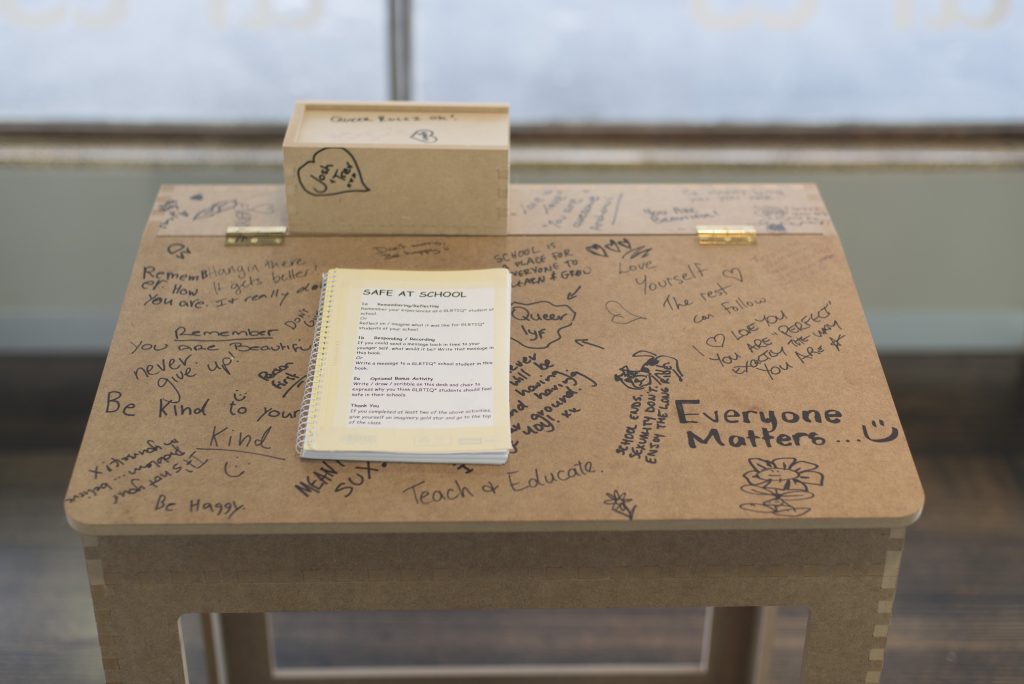 Queer Rules OK!
Josh
+ Trev
...
You Are
Beautiful!
Don't worry
Be happy!
SCHOOL IS
A PLACE FOR
EVERYONE TO
& GROW
Remem
er How
You are.
Hangin there.
It gets better!
It really
Love
Yourself
The rest
can follow
Queer
lyf
I ♡ LOVE YOU
YOU ARE "PERFECT"
EXACTLY THE WAY
YOU ARE
Remember
you are Beautiful
never
give up!
Be Kind to your
Kind
SAFE AT SCHOOL
1a Remembering/Reflecting
Remember your experiences as a GLBTIQ* student at
school.
Or
Reflect on / imagine what it was like for GLBTIQ*
students at your school.
1b Responding / Recording
If you could send a message back in time to your
younger self, what would it be? Write that message in
this book.
Or
Write a message to a GLBTIQ* school student in this
book.
1c Optional Bonus Activity
Write / draw / scribble on this desk and chair to
express why you think GLBTIQ* students should feel
safe in their schools.
Thank You
If you completed at least two of the above activities,
give yourself an imaginary gold star and go to the top
of the class.
will be
and having
SCHOOL ENDS,
SEXUALITY DON'T,
ENJOY THE LONG RIDE
Everyone
Matters...
it's not your
problem..
Be Happy.
MEAN
SUX
Teach & Educate.